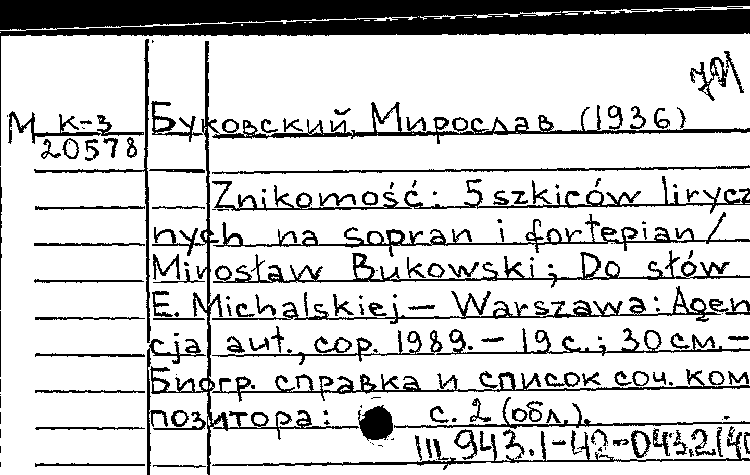 М К-3 Буковский, Мирослав (1936)
20578
Znikomość: 5 szkiców lirycz
nych na sopran i fortepian/
Mirosław Bukowski; Do słów
E. Michalskiej — Warszawa: Agen
cja aut., cop. 1989. — 19 с.; 30 см. —
Биогр. справка и список соч. ком
позитора: с. 2 (обл.).
Ш 943.1-42-043.2(40